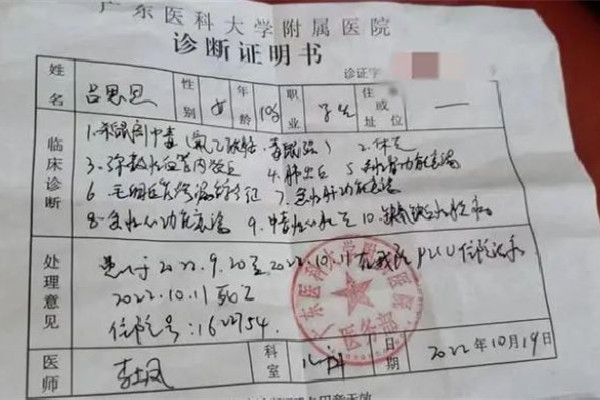 广东医科大学附属医院
诊断证明书
诊证字
姓名 吕思思 性别 女 年龄 10岁 职业 学生 住址或单位 —
临床诊断
1. 杀鼠剂中毒（氟乙酰胺、毒鼠强） 2. 休克
3. 弥散性血管内凝血 4. 肺出血 5. 急性肾功能衰竭
6. 毛细血管渗漏综合征 7. 急性肝功能衰竭
8. 急性心功能衰竭 9. 中毒性心肌炎 10. 缺氧缺血性脑病
处理意见
患儿于2022.9.20至2022.10.11在我院PICU住院治疗
2022.10.11死亡
住院号：1622754.
广东医科大学附属医院
医务部
医师 科室 儿科 日期 2022年10月19日